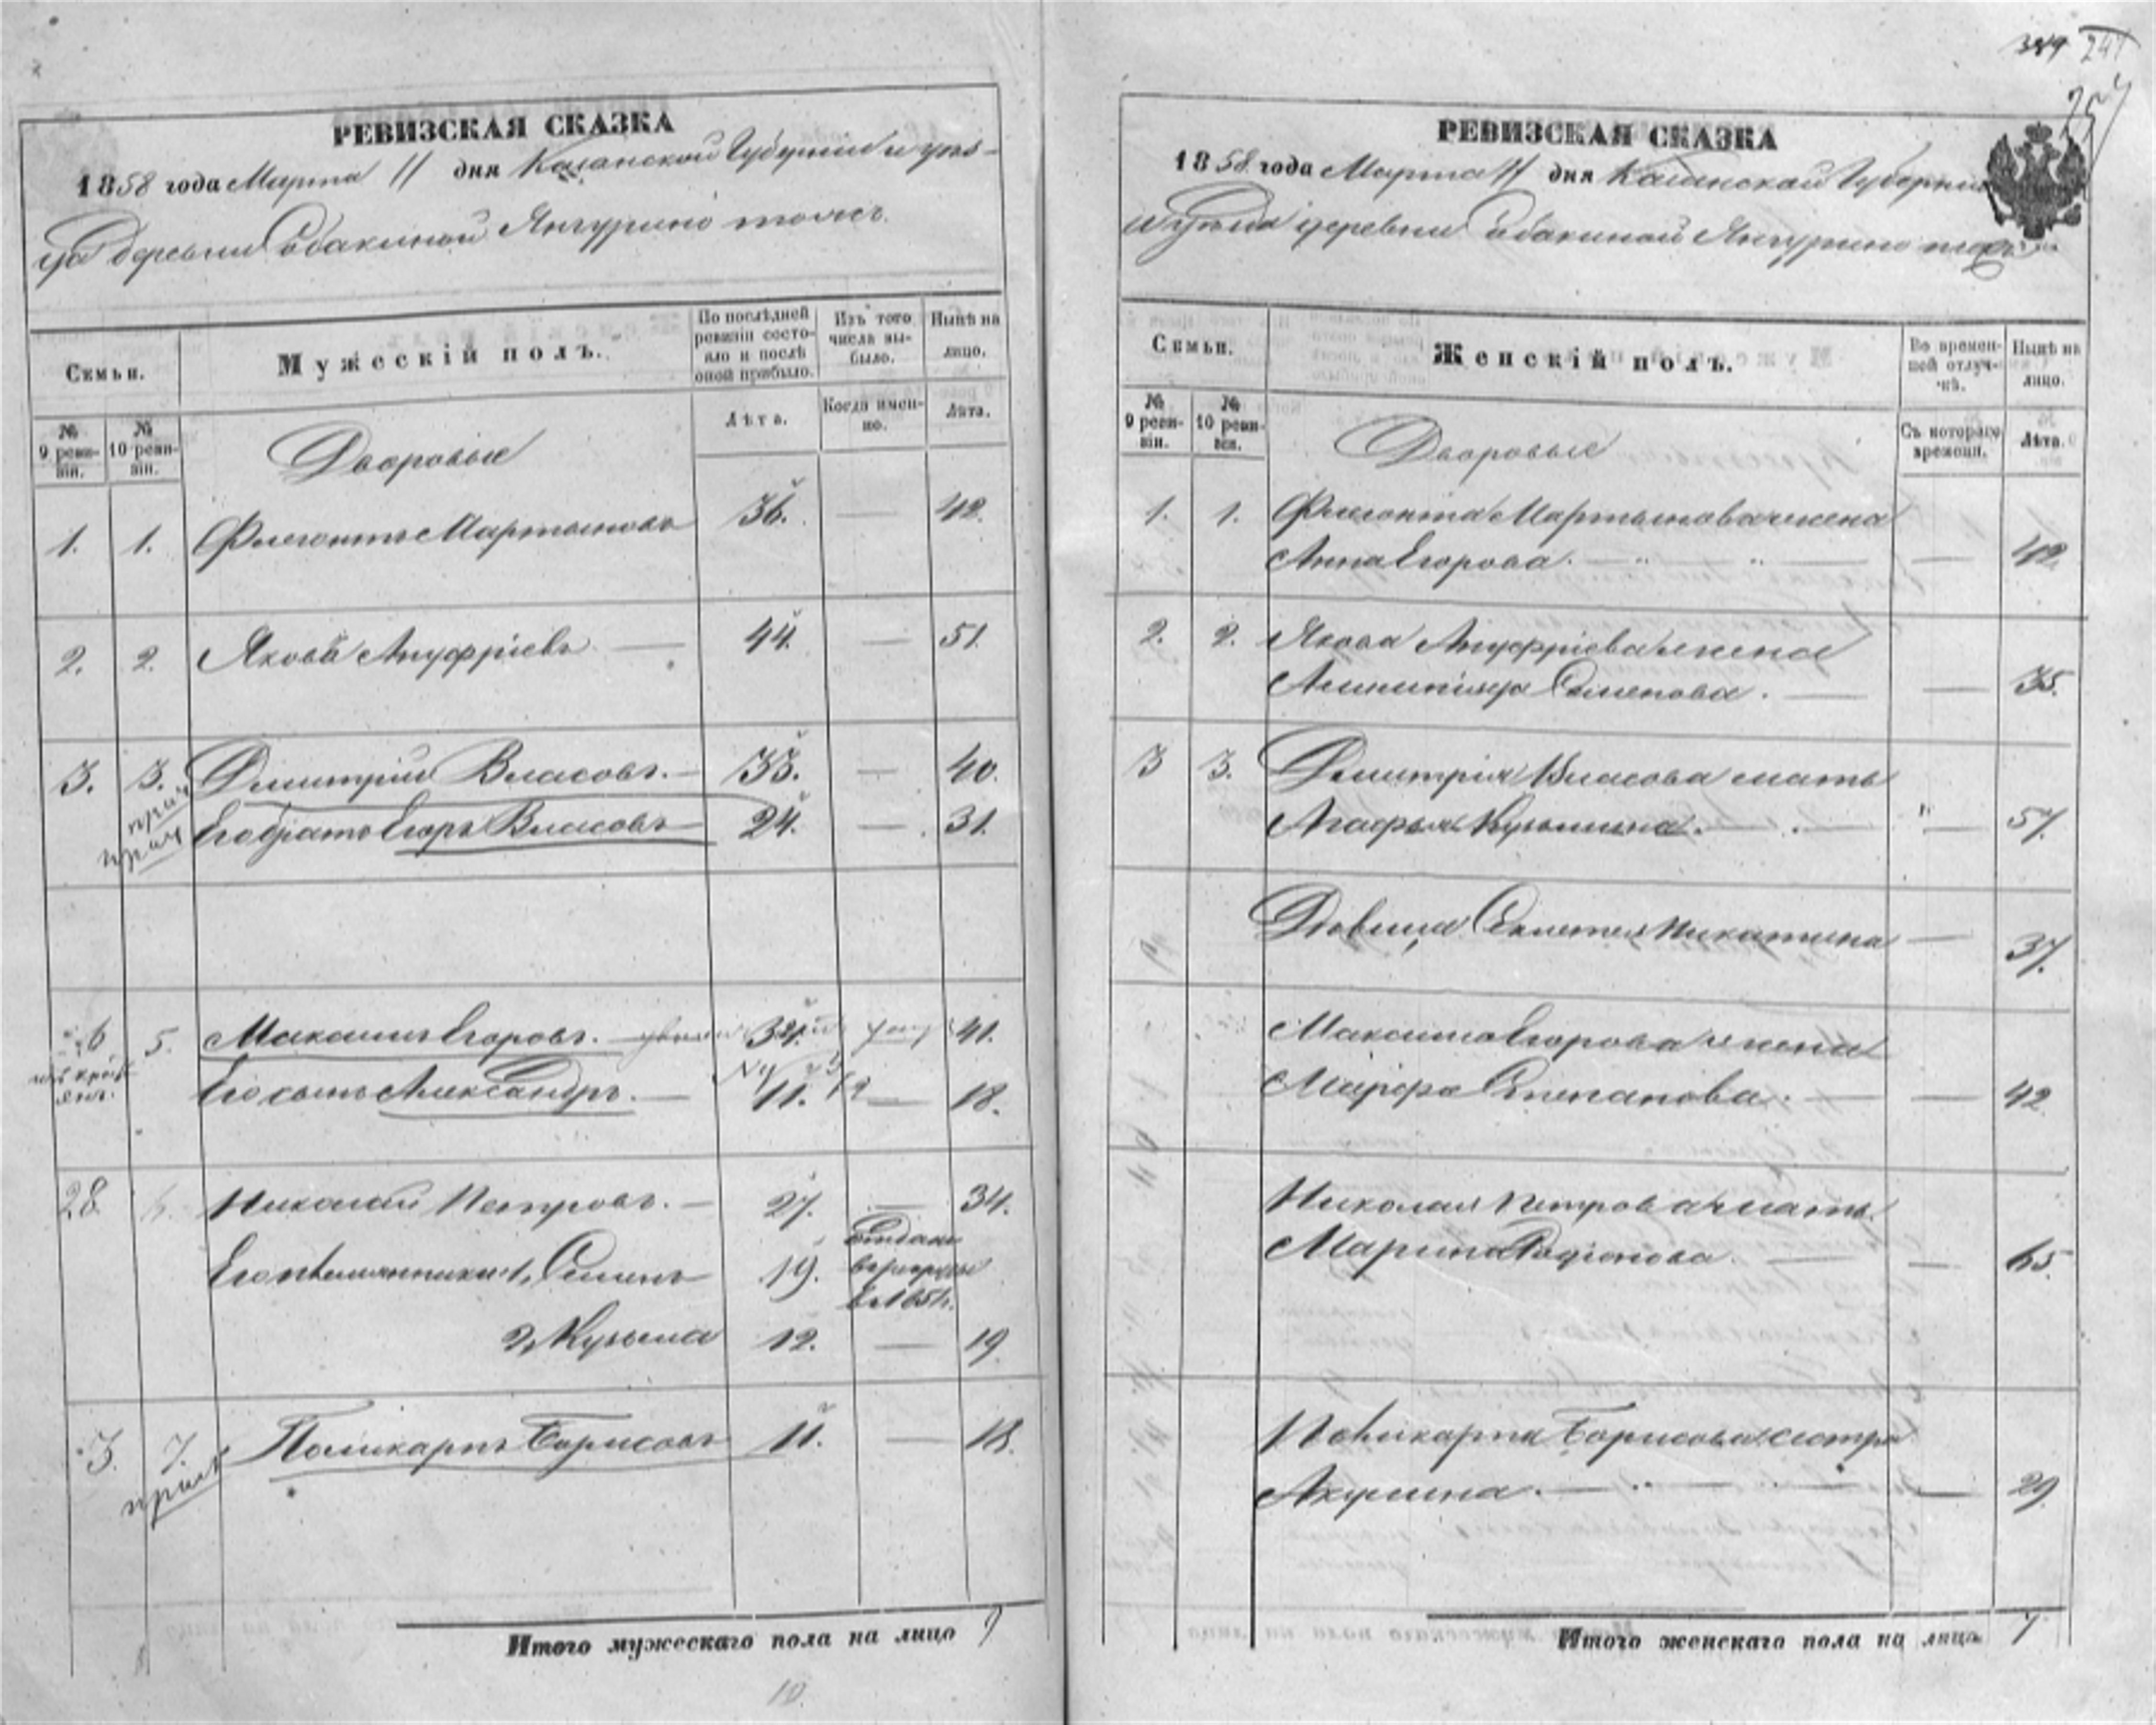 РЕВИЗСКАЯ СКАЗКА
1858 года Марта 11 дня Казанской Губерніи и уѣз-
да деревни Собакиной Янгурино тожъ.
Семьи.
Мужескій полъ.
По послѣдней ревизіи состояло и послѣ оной прибыло.
Изъ того числа выбыло.
Нынѣ на лицо.
№ 9 ревизіи.
№ 10 ревизіи.
Лѣта.
Когда именно.
Лѣта.
Дворовые
1. 1. Флегонтъ Мартыновъ 36. — 42.
2. 2. Яковъ Ануфріевъ — 44. — 51.
3. 3. Дмитрій Власовъ. — 33. — 40.
Его братъ Егоръ Власовъ — 24. — 31.
6 5. Максимъ Егоровъ. — 34. 41.
Его сынъ Александръ. — 11. — 18.
28. 6. Николай Петровъ. — 27. — 34.
Его племянники 1, Семенъ 19. Отданъ
в рекруты
в 1854.
2, Кузьма 12. — 19.
3. 7. Поликарпъ Борисовъ 11. — 18.
Итого мужескаго пола на лицо 9
10.
247
257
РЕВИЗСКАЯ СКАЗКА
1858 года Марта 11 дня Казанской Губерніи
и уѣзда деревни Собакиной Янгурино тожъ
Семьи.
Женскій полъ.
Во временной отлучкѣ.
Нынѣ на лицо.
№ 9 ревизіи.
№ 10 ревизіи.
Съ котораго времени.
Лѣта.
Дворовые
1. 1. Флегонта Мартынова жена
Анна Егорова. — — 42.
2. 2. Якова Ануфріева жена
Семенова. — — 35.
3 3. Дмитрія Власова мать
Агафья Кузьмина. — — 57.
Дѣвица Никитина — 37.
Максима Егорова жена
Марфа Степанова. — — 42
Николая Петрова мать
Марина Родіонова. — — 65.
Поликарпа Борисова сестра
Акулина. — — 29.
Итого женскаго пола на лицо 7